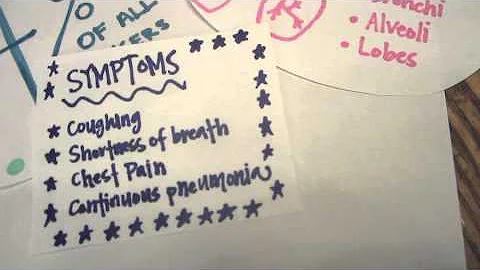 %
OF ALL
SYMPTOMS
Coughing
Shortness of breath
Chest Pain
Continuous pneumonia
• Alveoli
• Lobes